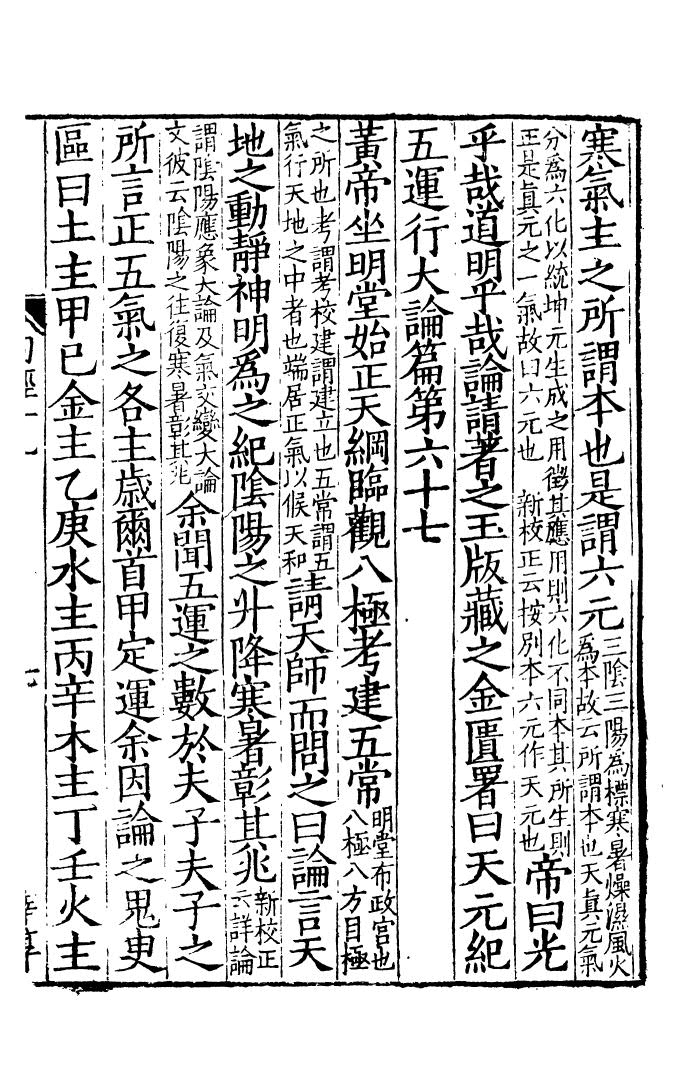 寒氣主之所謂本也是謂六元三陰三陽爲標寒暑燥濕風火爲本故云所謂本也天眞元氣
分爲六化以統坤元生成之用徵其應用則六化不同本其所生則正是眞元之一氣故曰六元也 新校正云按別本六元作天元也帝曰光
乎哉道明乎哉論請著之玉版藏之金匱署曰天元紀
五運行大論篇第六十七
黃帝坐明堂始正天綱臨觀八極考建五常明堂布政宮也八極八方目極
之所也考謂考校建謂建立也五常謂五氣行天地之中者也端居正氣以候天和請天師而問之曰論言天
地之動靜神明爲之紀陰陽之升降寒暑彰其兆新校正云詳論
謂陰陽應象大論及氣交變大論文彼云陰陽之往復寒暑彰其兆余聞五運之數於夫子夫子之
所言正五氣之各主歲爾首甲定運余因論之鬼臾
區曰土主甲己金主乙庚水主丙辛木主丁壬火主